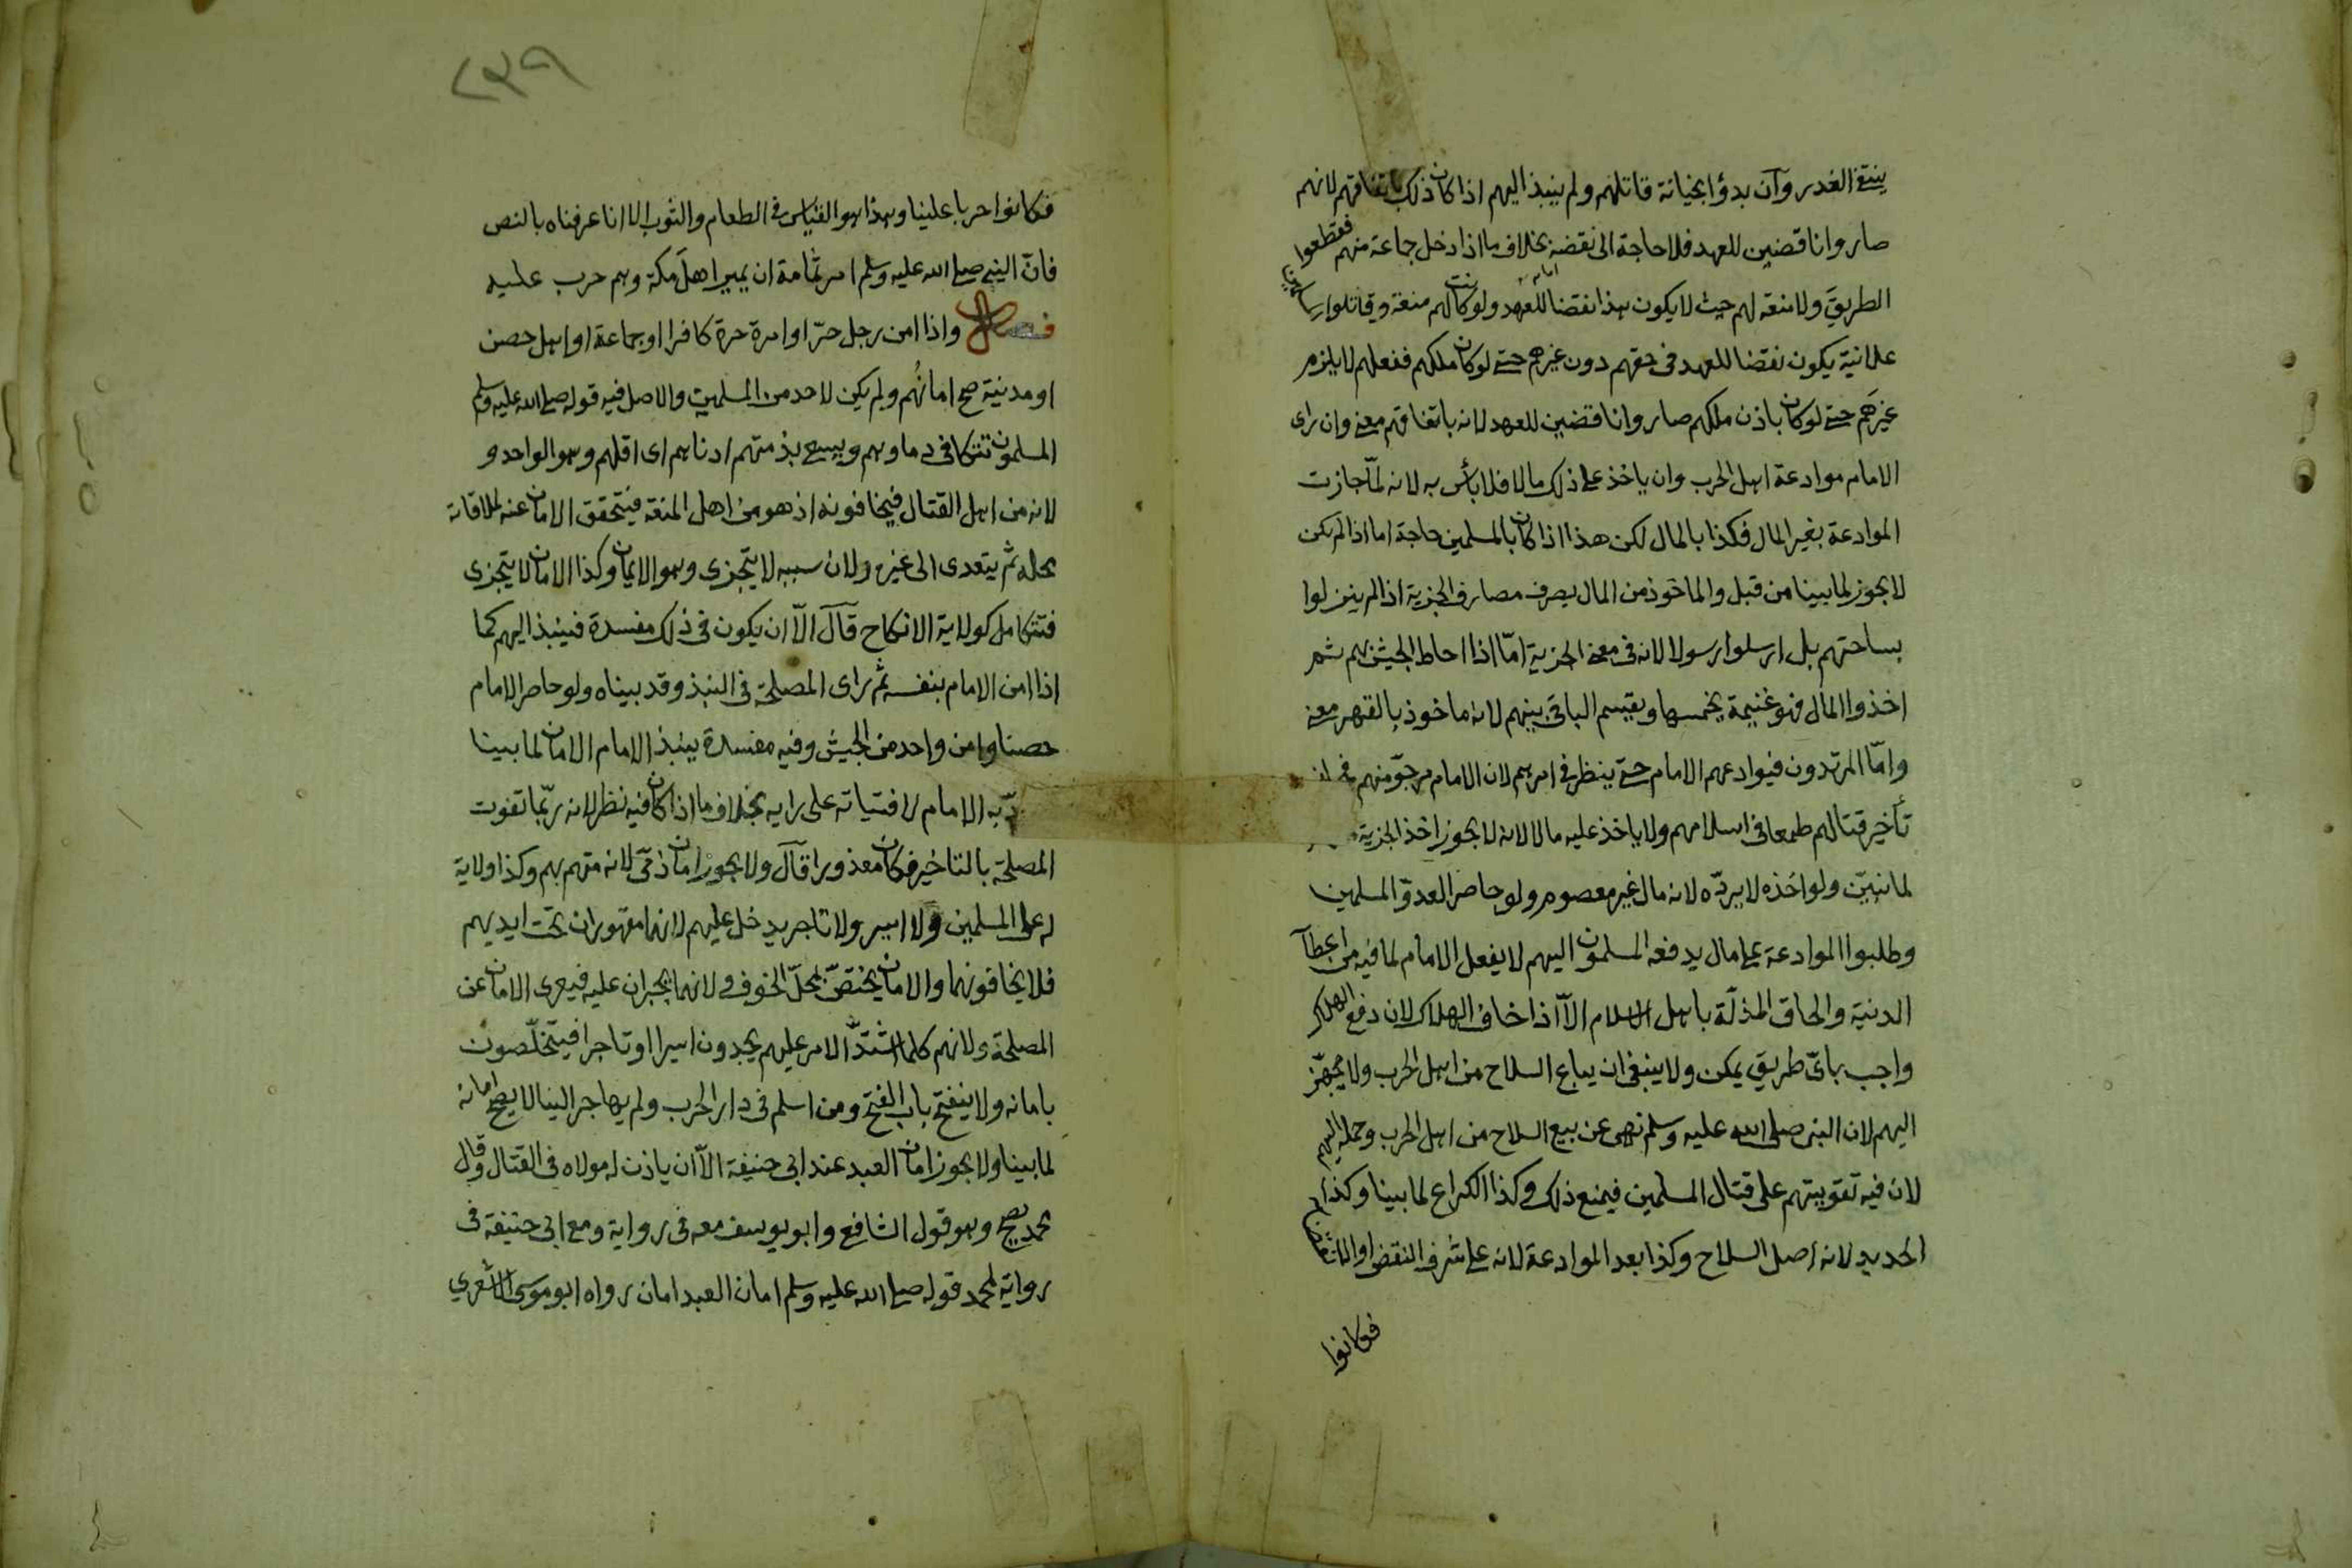 ينتفي الغدر وآن بدؤا بخيانة قاتلهم ولم ينبذ اليهم اذا كان ذلك باتفاقهم لانهم
صاروا ناقضين للعهد فلا حاجة الى نقضه بخلاف ما اذا دخل جماعة منهم فقطعوا
الطريق ولا منعة لهم حيث لا يكون هذا نقضا للعهد ولو كانت لهم منعة وقاتلوا
علانية يكون نقضا للعهد فى حقهم دون غيرهم حتى لو كان ملكهم ففعلهم لا يلزم
غيرهم حتى لو كان باذن ملكهم صاروا ناقضين للعهد لانه باتفاقهم معنى وان راى
الامام موادعة اهل الحرب وان ياخذ على ذلك مالا فلا بأس به لانه لمّا جازت
الموادعة بغير المال فكذا بالمال لكن هذا اذا كان بالمسلمين حاجة اما اذا لم يكن
لا يجوز لما بينا من قبل والماخوذ من المال يصرف مصارف الجزية اذا لم ينزلوا
بساحتهم بل ارسلوا رسولا لانه فى معنى الجزية امّا اذا احاط الجيش بهم ثم
اخذوا المال فهو غنيمة يخمسها ويقسم الباقى بينهم لانه ماخوذ بالقهر معنى
وامّا المرتدون فيوادعهم الامام حتى ينظر فى امرهم لان الامام مرجوّ منهم
تأخير قتالهم طمعا فى اسلامهم ولا ياخذ عليه مالا لانه لا يجوز اخذ الجزية
لما نبيّن ولو اخذه لا يردّه لانه مال غير معصوم ولو حاصر العدوّ المسلمين
وطلبوا الموادعة على مال يدفعه المسلمون اليهم لا يفعل الامام لما فيه من اعطآ
الدنية والحاق المذلّة باهل الاسلام الّا اذا خاف الهلاك لان دفع الهلاك
واجب باىّ طريق يمكن ولا ينبغى ان يباع السلاح من اهل الحرب ولا يجهّز
اليهم لان النبى صلى الله عليه وسلم نهى عن بيع السلاح من اهل الحرب وحمله اليهم
لان فيه تقويتهم على قتال المسلمين فيمنع ذلك وكذا الكراع لما بينا وكذا
الحديد لانه اصل السلاح وكذا بعد الموادعة لانه على شرف النقض او الانقضاء
فكانوا
٢٣٩
فكانوا حربا علينا وهذا هو القياس فى الطعام والثوب الا انا عرفناه بالنص
فانّ النبى صلى الله عليه وسلم امر ثمامة ان يمير اهل مكة وهم حرب عليه
فصل واذا امن رجل حرّ او امرة حرة كافرا او جماعة او اهل حصن
او مدينة صح امانُهم ولم يكن لاحد من المسلمين والاصل فيه قوله صلى الله عليه وسلم
المسلمون تتكافى دماوهم ويسعى بذمتهم ادناهم اى اقلهم وهو الواحد و
لانه من اهل القتال فيخافونه اذ هو من اهل المنعة فيتحقق الامان عنه لملاقاته
محله ثم يتعدى الى غيره ولان سببه لا يتجزى وهو الايمان وكذا الامان لا يتجزى
فتتكامل كولاية الانكاح قآل الّا ان يكون فى ذلك مفسدة فينبذ اليهم كما
اذا امن الامام بنفسه ثم راى المصلحة فى النبذ وقد بيناه ولو حاصر الامام
حصنا وامن واحد من الجيش وفيه مفسدة ينبذ الامام الامان لما بينا
دّبه الامام لافتياته على رايه بخلاف ما اذا كان فيه نظر لانه ربّما تفوت
المصلحة بالتاخير فكان معذورا قآل ولا يجوز امان ذمّى لانه متهم بهم وكذا ولاية
له على المسلمين ولا اسير ولا تاجر يدخل عليهم لانهما مقهوران تحت ايديهم
فلا يخافونهما والامان يختصّ بمحلّ الخوف ولانهما يجبران عليه فيعرى الامان عن
المصلحة ولانهم كلما اشتدّ الامر عليهم يجدون اسيرا او تاجرا فيتخلّصون
بامانه ولا ينفتح باب الفتح ومن اسلم فى دار الحرب ولم يهاجر الينا لا يصح امانه
لما بينا ولا يجوز امان العبد عند ابى حنيفة الاّ ان ياذن له مولاه فى القتال وقال
محمد يصح وهو قول الشافعى وابو يوسف معه فى رواية ومع ابى حنيفة فى
رواية لمحمد قوله صلى الله عليه وسلم امان العبد امان رواه ابو موسى الاشعرى